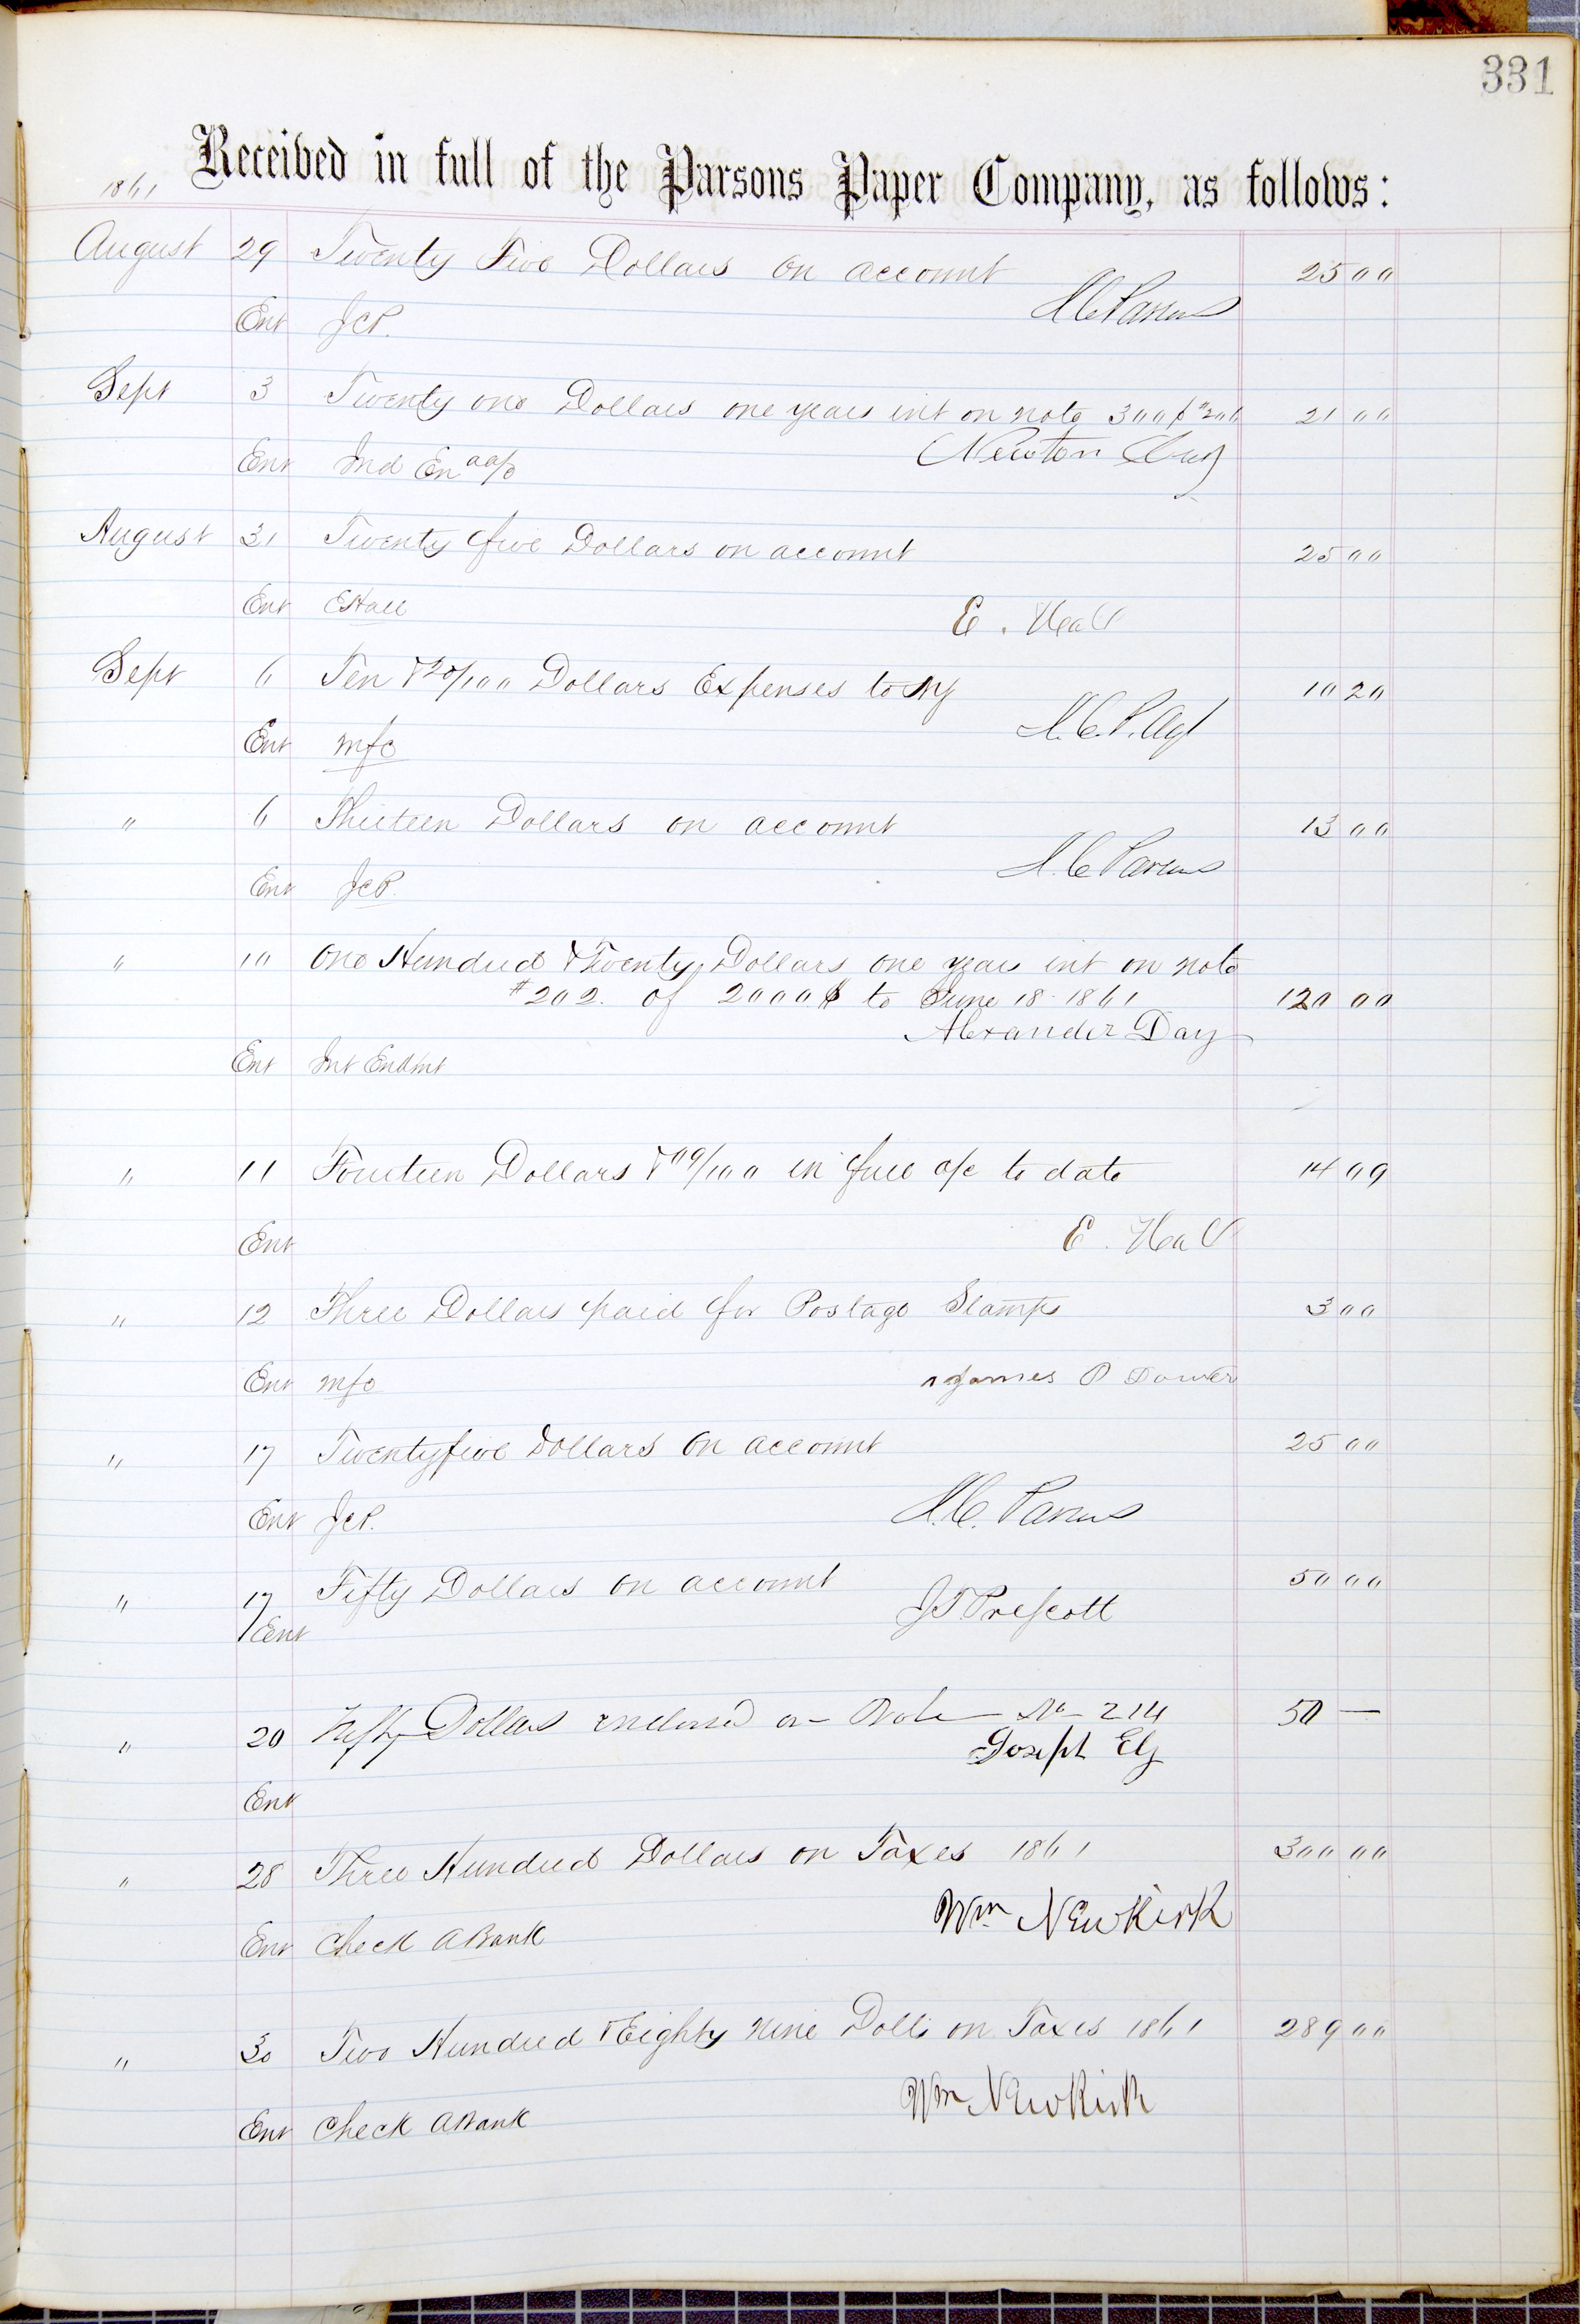 331
1861 Received in full of the Parsons Paper Company, as follows:
August 29 Twenty Five Dollars on account 25 00
Ent JCP. J C Parsons
Sept 3 Twenty one Dollars one years int on note 300$ 21 00
Ent Ind En Newton Day
August 31 Twenty five Dollars on account 25 00
Ent E Hall E. Hall
Sept 6 Ten & 20/100 Dollars Expenses to NY 10 20
Ent mfo J. C. P. Agt
" 6 Thirteen Dollars on account 13 00
Ent JCP. J. C Parsons
" 10 One Hundred & Twenty Dollars one years int on note
#202. of 2000$ to June 18 1861 120 00
Alexander Day
Ent Int Endmt
" 11 Fourteen Dollars & 09/100 in full a/c to date 14 09
Ent E. Hall
" 12 Three Dollars paid for Postage Stamps 3 00
Ent mfo James P Tower
" 17 Twentyfive Dollars on account 25 00
Ent JCP. J. C. Parsons
" 17 Fifty Dollars on account 50 00
Ent J T Prescott
" 20 Fifty Dollars endorsed on Note No 214 50 —
Joseph Ely
Ent
" 28 Three Hundred Dollars on Taxes 1861 300 00
Wm Newkirk
Ent Check A Bank
" 30 Two Hundred & Eighty nine Dolls on Taxes 1861 289 00
Wm Newkirk
Ent Check A Bank